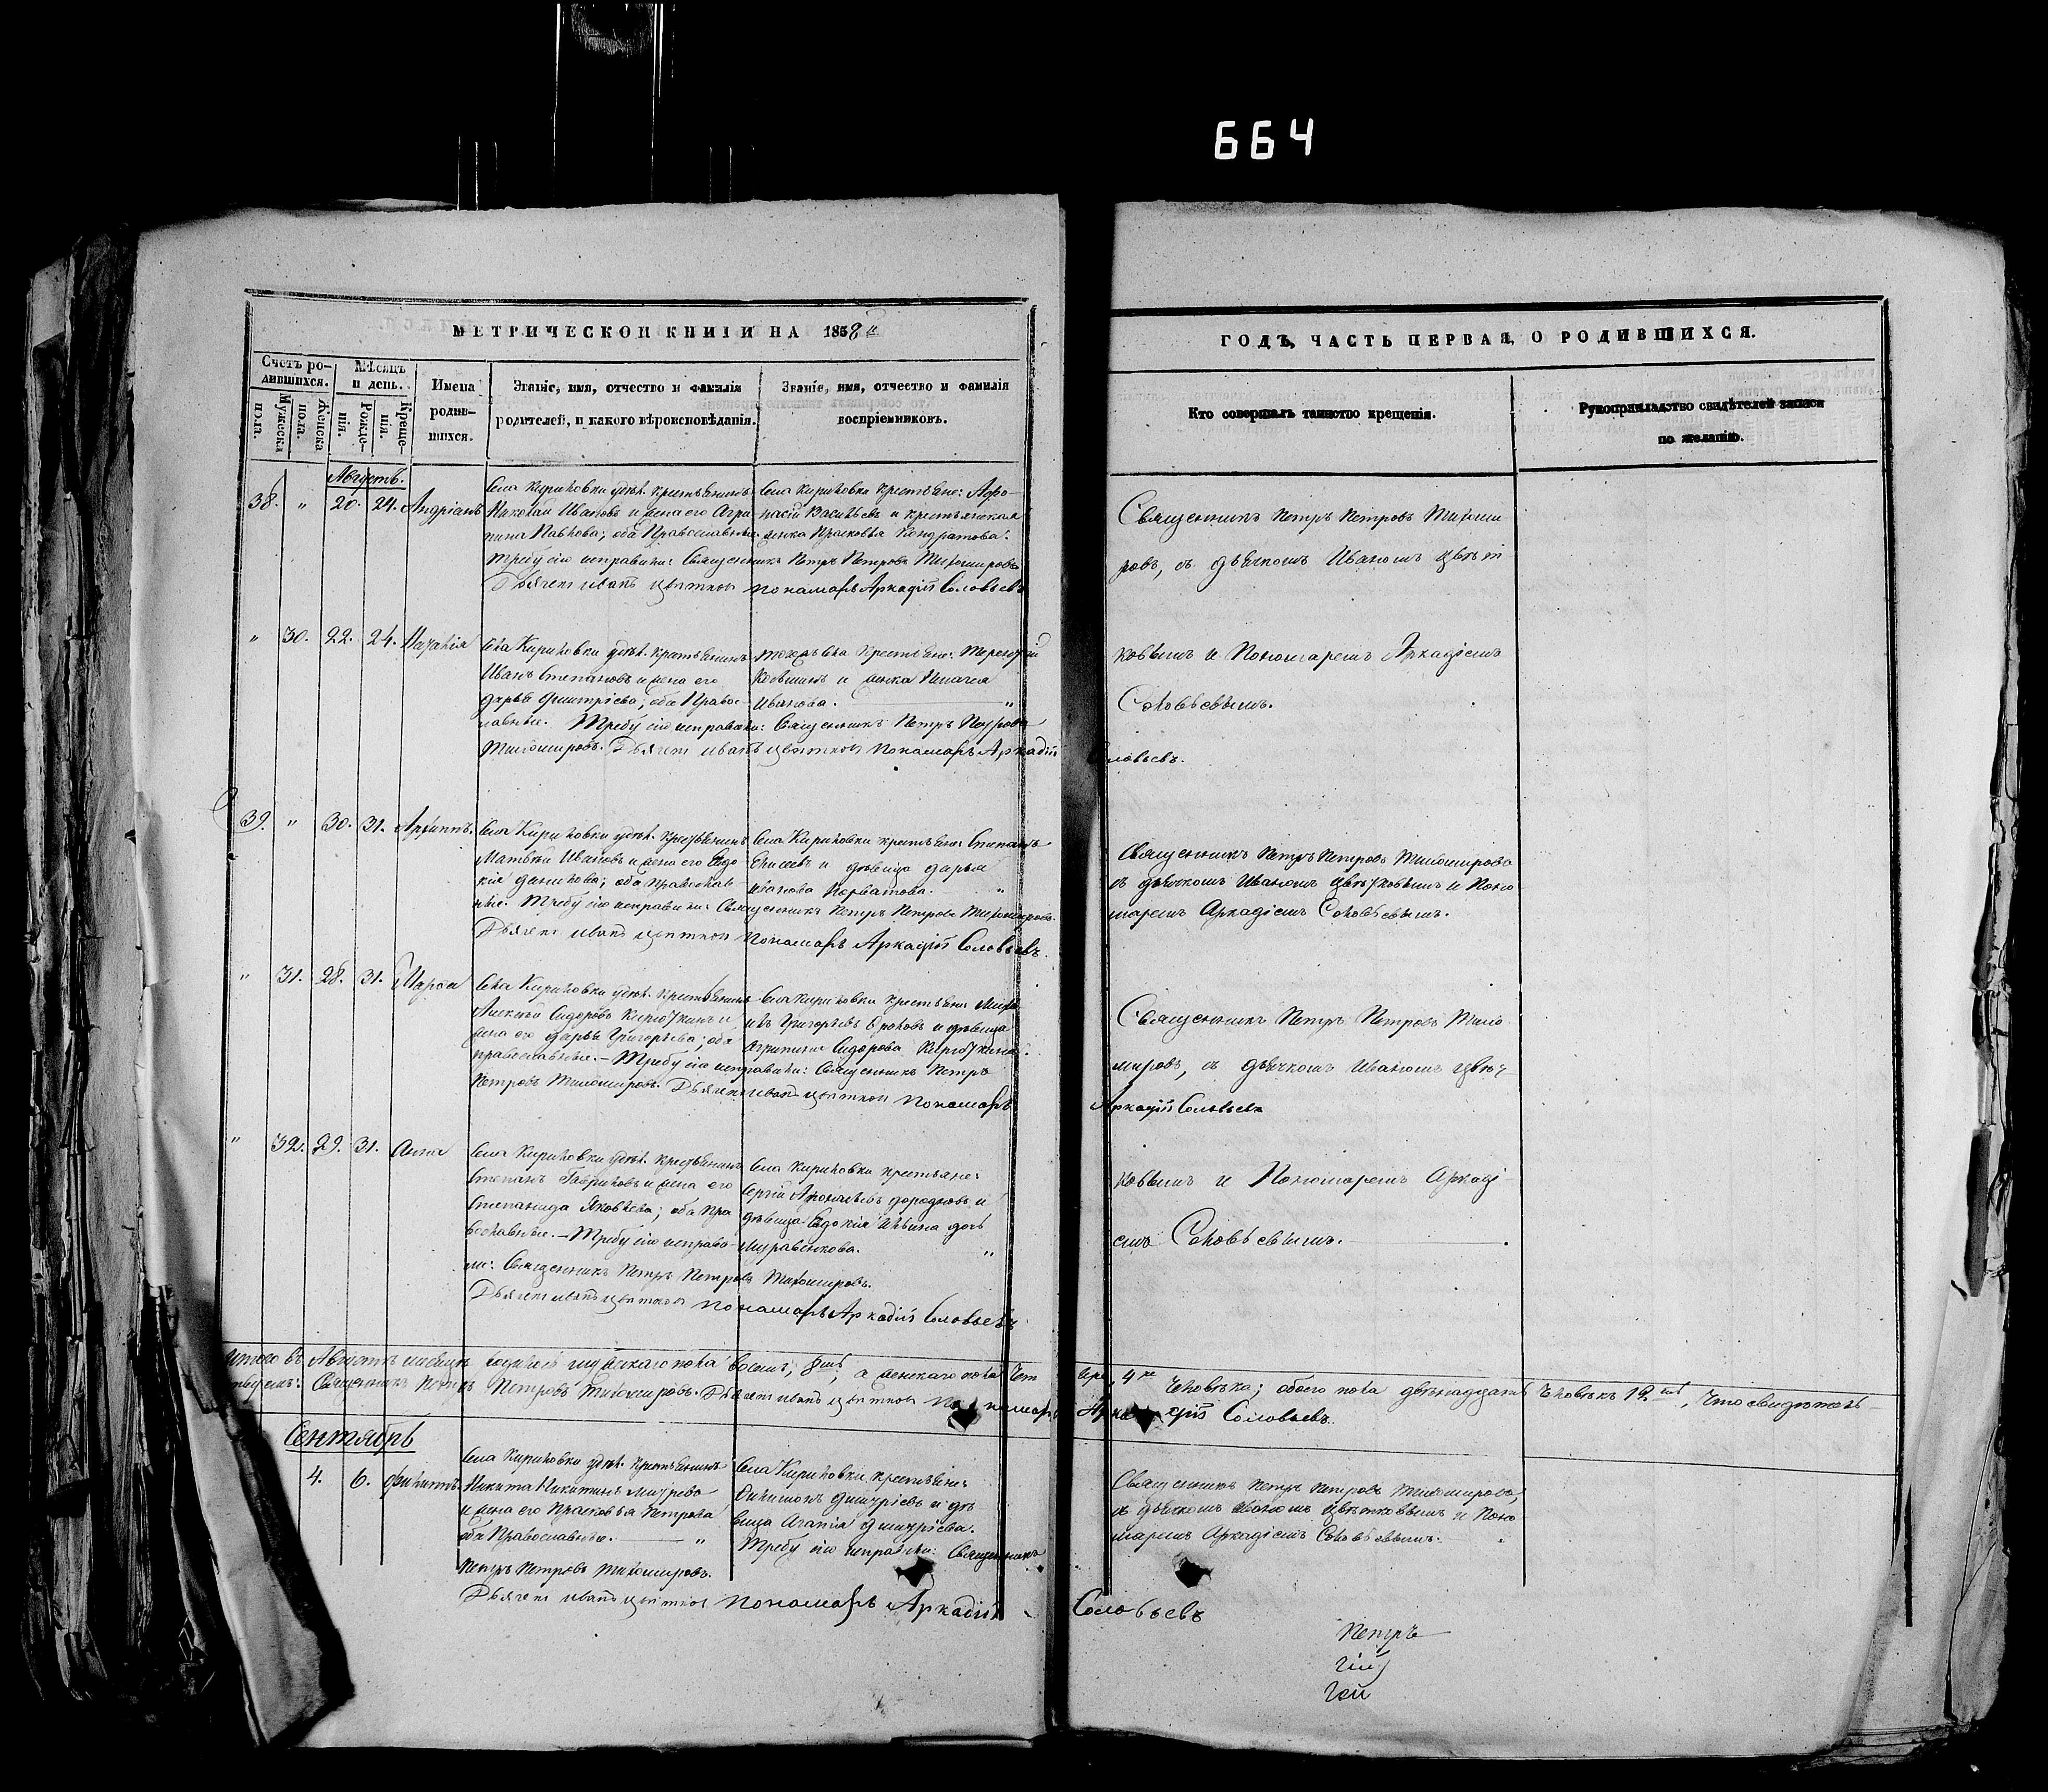 664
МЕТРИЧЕСКОЙ КНИГИ НА 1858й
ГОДЪ, ЧАСТЬ ПЕРВАЯ, О РОДИВШИХСЯ.
Счетъ ро-
дившихся.
Мужеска
пола.
Женска
пола.
Мѣсяцъ
и день.
Рожде-
нія.
Креще-
нія.
Имена
родив-
шихся.
Званіе, имя, отчество и фамилія
родителей, и какого вѣроисповѣданія.
Званіе, имя, отчество и фамилія
воспріемниковъ.
Кто совершалъ таинство крещенія.
Рукоприкладство свидѣтелей записи
по желанію.
Августъ.
38. " 20. 24. Андріанъ
Села Кириловки удѣл. крестьянинъ
Николай Ивановъ и жена его Агри-
пина Павлова; оба Православные
Села Кириловки крестьяне: Афо-
насій Васильевъ и крестьянская
женка Прасковья Кондратова.
Требу сію исправили: Священникъ Петръ Петровъ Тихомировъ
Дьячекъ Иванъ Цвѣтковъ Пономарь Аркадій Соловьевъ
Священникъ Петръ Петровъ Тихоми
ровъ, съ дьячкомъ Иваномъ Цвѣт
ковымъ и Пономаремъ Аркадіемъ
Соловьевымъ.
" 30. 22. 24.
Села Кириловки удѣл. крестьянинъ
Иванъ Степановъ и жена его
Дарья Дмитріева; оба Правос-
лавные. Требу сію исправили: Священникъ Петръ Петровъ
Тихомировъ. Дьячекъ Иванъ Цвѣтковъ Пономарь Аркадій
Соловьевъ.
39. " 30. 31. Архиппъ.
Села Кириловки удѣл. крестьянинъ
Матвѣй Ивановъ и жена его Евдо
кія Данилова; оба православ
ные. Требу сію исправили: Священникъ Петръ Петровъ Тихомировъ.
Села Кириловки крестьяне: Степанъ
Елисеевъ и дѣвица Дарья
Иванова "
Дьячекъ Иванъ Цвѣтковъ Пономарь Аркадій Соловьевъ.
Священникъ Петръ Петровъ Тихомировъ
съ дьячкомъ Иваномъ Цвѣтковымъ и Поно
маремъ Аркадіемъ Соловьевымъ.
" 31. 28. 31. Марѳа
Села Кириловки удѣл. крестьянинъ
Алексѣй Сидоровъ и
жена его Дарья Григорьева; оба
православные. – Требу сію исправили: Священникъ Петръ
Петровъ Тихомировъ. Дьячекъ Иванъ Цвѣтковъ Пономарь
Аркадій Соловьевъ
Села Кириловки крестьяне: Миха
илъ Григорьевъ и дѣвица
Агрипина Сидорова
Священникъ Петръ Петровъ Тихо
мировъ, съ дьячкомъ Иваномъ Цвѣт
ковымъ и Пономаремъ Аркаді
емъ Соловьевымъ.
" 32. 29. 31. Анна
Села Кириловки удѣл. крестьянинъ
Степанъ Гавриловъ и жена его
Степанида Яковлева; оба Пра
вославные. – Требу сію исправи
ли: Священникъ Петръ Петровъ Тихомировъ.
Села Кириловки крестьяне:
Сергій и
дѣвица Евдокія Ильина дочь
Муравенкова. "
Дьячекъ Иванъ Цвѣтковъ Пономарь Аркадій Соловьевъ
Итого въ Августѣ мѣсяцѣ мужскаго пола восемь, 8мь, а женскаго пола чет
ыре, 4ре человѣка; обоего пола двѣнадцать человѣкъ 12ть, что свидѣтель-
ствуемъ: Священникъ Петръ Петровъ Тихомировъ. Дьячекъ Иванъ Цвѣтковъ Пономарь Аркадій Соловьевъ.
Сентябрь
4. 6. Филиппъ
Села Кириловки удѣл. крестьянинъ
Никита Никитинъ
и жена его Прасковья Петрова
оба Православные. — "
Села Кириловки крестьяне:
Филимонъ Дмитріевъ и дѣ
вица Агапія Дмитріева.
Требу сію исправили: Священникъ
Петръ Петровъ Тихомировъ.
Дьячекъ Иванъ Цвѣтковъ Пономарь Аркадій Соловьевъ
Священникъ Петръ Петровъ Тихомировъ,
съ дьячкомъ Иваномъ Цвѣтковымъ и Поно
маремъ Аркадіемъ Соловьевымъ.
Петръ